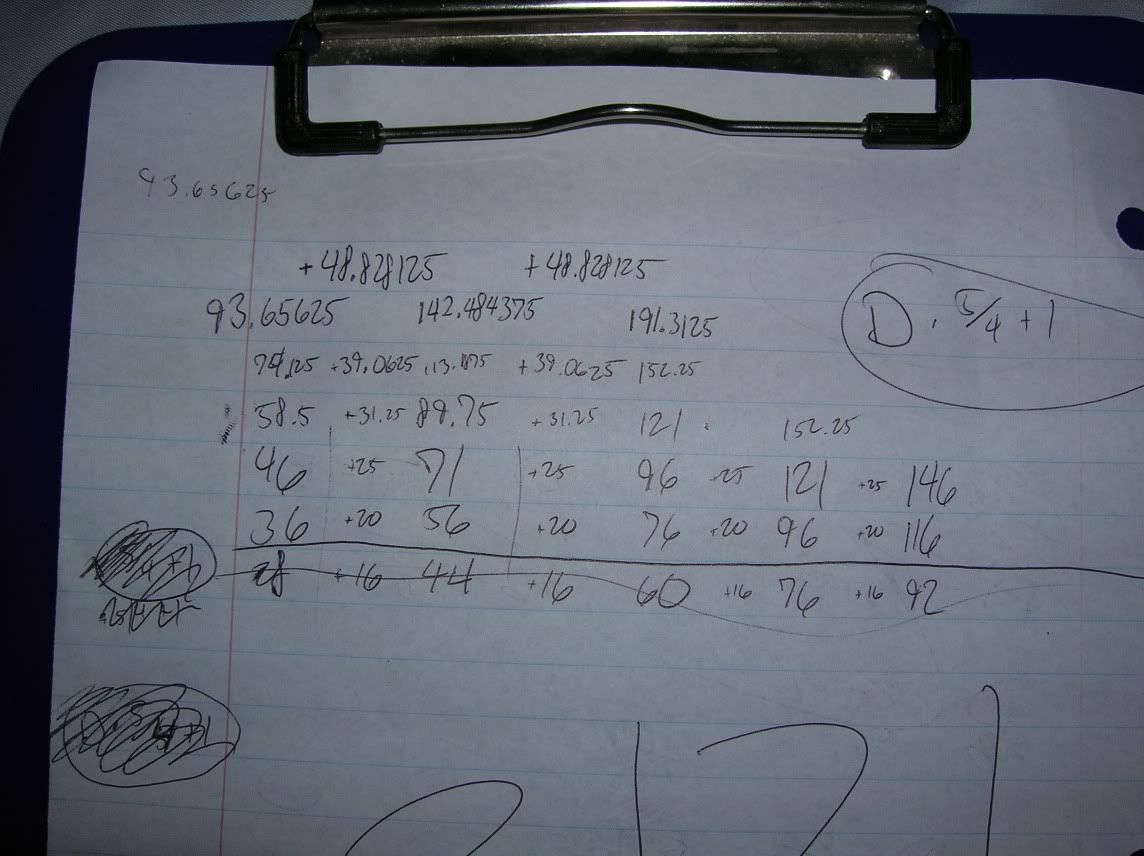 93.65625
+48.828125 +48.828125
93.65625 142.484375 191.3125
D . 5/4 + 1
74.125 +39.0625 113.1875 +39.0625 152.25
58.5 +31.25 89.75 +31.25 121 . 152.25
46 +25 71 +25 96 +25 121 +25 146
36 +20 56 +20 76 +20 96 +20 116
28 +16 44 +16 60 +16 76 +16 92